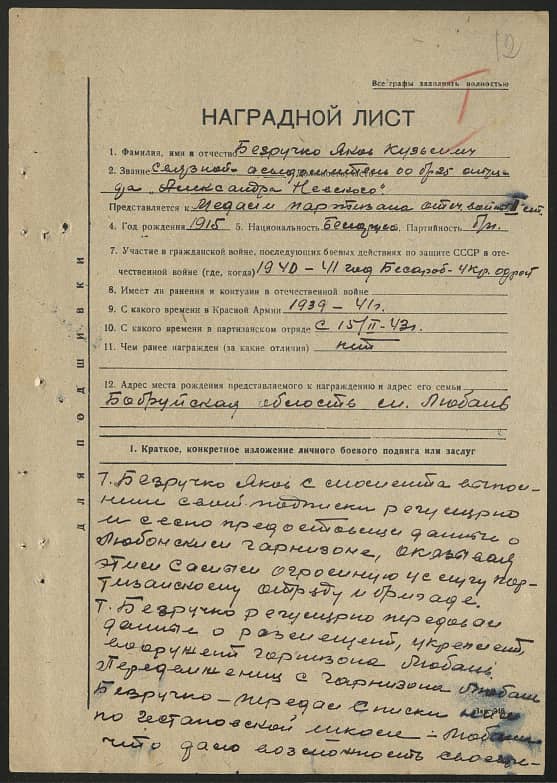 12
Все графы заполнять полностью
НАГРАДНОЙ ЛИСТ
1. Фамилия, имя и отчество Безручко Яков Кузьмич
2. Звание Связной 00 бр 25 отря-
да "Александра Невского".
Представляется к Медали партизана отеч. войны II ст.
4. Год рождения 1915 5. Национальность Беларус 6. Партийность бп.
7. Участие в гражданской войне, последующих боевых действиях по защите СССР в оте-
чественной войне (где, когда) 1940 – 41 год Бесараб-Укр.
8. Имеет ли ранения и контузии в отечественной войне
9. С какого времени в Красной Армии 1939 – 41 г.
10. С какого времени в партизанском отряде с 15/II-43г.
11. Чем ранее награжден (за какие отличия) нет
12. Адрес места рождения представляемого к награждению и адрес его семьи
Бобруйская область м. Любань
1. Краткое, конкретное изложение личного боевого подвига или заслуг
Т. Безручко Яков с момента
своей подписки регулярно
и данные о
Любанском гарнизоне, оказывая
этим самым огромную услугу пар-
тизанскому отряду и бригаде.
Т. Безручко регулярно передавал
данные о размещении, укреплении,
вооружении гарнизона Любань.
с гарнизона Любань
Безручко – передал списки
по гестаповской школе – Любань
что дало возможность
ДЛЯ ПОДШИВКИ